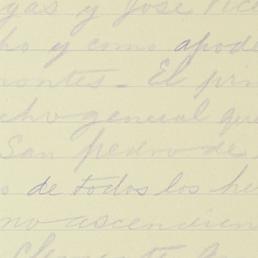 gas y José Vice
ho y como apode
montes. El prin
cho general que
San pedro de
o de todos los he
mo ascendien
Clemente